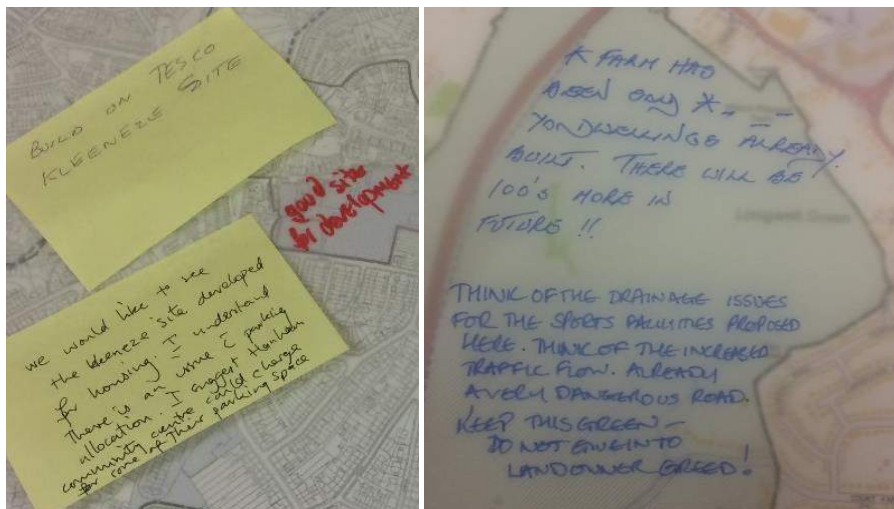 BUILD ON TESCO
KLEENEZE SITE
good site
for development
we would like to see
the kleeneze site developed
for housing. I understand
There is an issue c̄ parking
allocation. I suggest Hanham
community centre could charge
for some of their parking space
K FARM HAD
BEEN
DWELLINGS ALREADY
BUILT. THERE WILL BE
100's MORE IN
FUTURE !!
Longwell Green
THINK OF THE DRAINAGE ISSUES
FOR THE SPORTS FACILITIES PROPOSED
HERE. THINK OF THE INCREASED
TRAFFIC FLOW. ALREADY
A VERY DANGEROUS ROAD.
KEEP THIS GREEN –
DO NOT GIVE IN TO
LANDOWNER GREED!